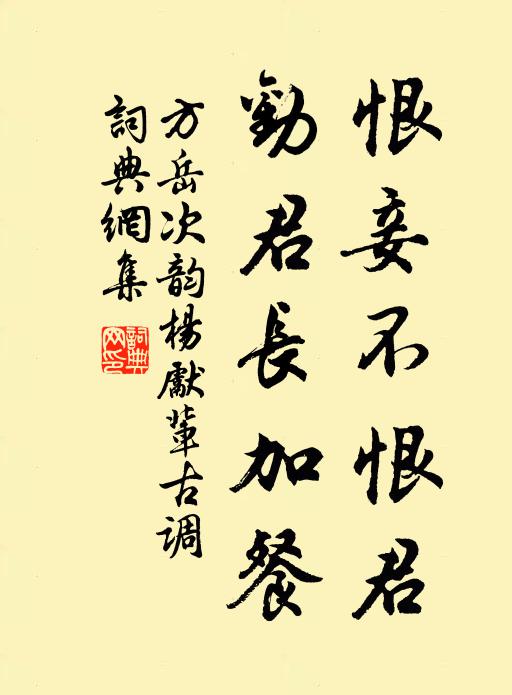 恨妾不恨君
勸君長加餐
方岳次韵楊獻輩古调
詞典網集
詞典網印